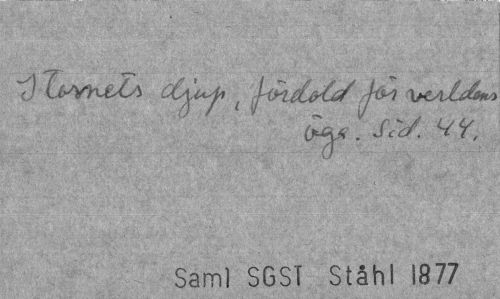 I tornets djup, fördold för verldens
öga. Sid. 44.
Saml SGST Ståhl 1877